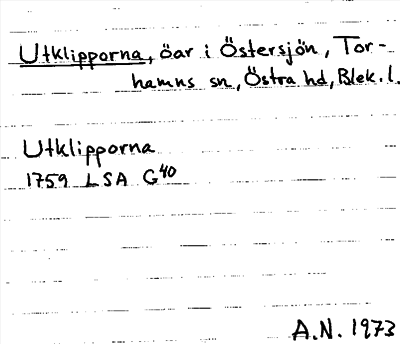 Utklipporna, öar i Östersjön, Tor-
hamns sn, Östra hd, Blek. l.
Utklipporna
1759 LSA G40
A.N. 1973